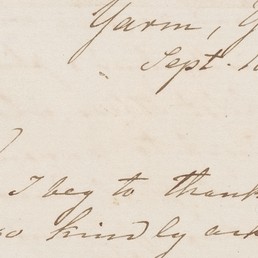 Yarm, Y
Sept. 1
I beg to thank
so kindly